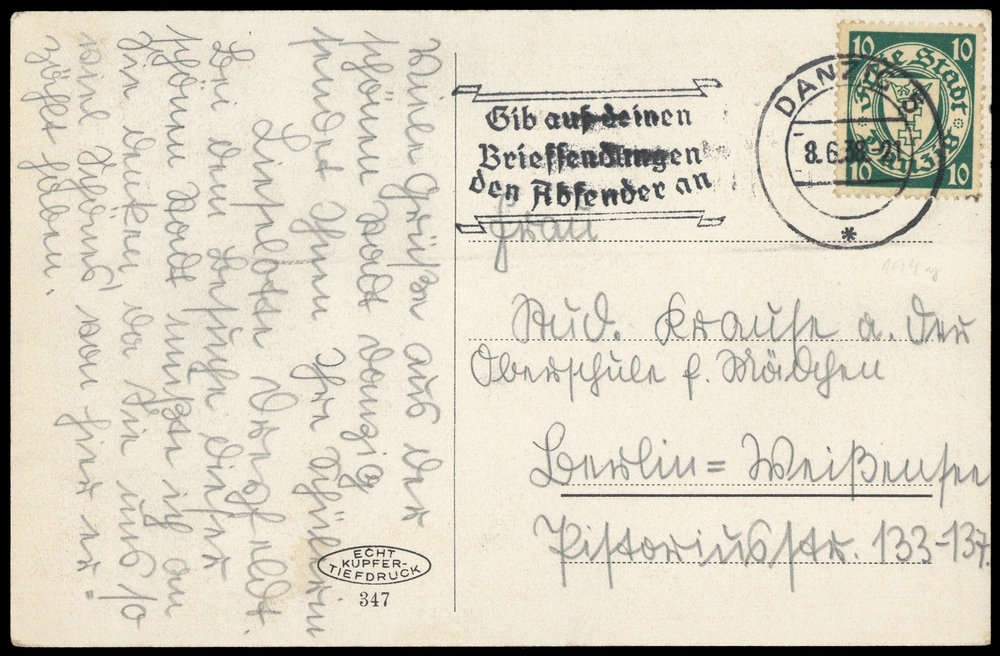 Viele Grüße aus der
schönen Stadt Danzig
sendet Ihnen Ihre Schülerin
Liselotte
Bei dem Besuche dieser
schönen Stadt mußte ich an
Sie denken, da Sie uns so
viel Schönes von hier er=
zählt haben.
Gib auf deinen
Briefsendungen
den Absender an
DANZIG 5
8.6.38.
*
10 10
Freie Stadt
Danzig
10 10
Frau
Stud. Krause a. der
Oberschule f. Mädchen
Berlin=Weißensee
Pistoriusstr. 133-137.
ECHT
KUPFER-
TIEFDRUCK
347